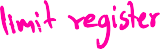 limit register